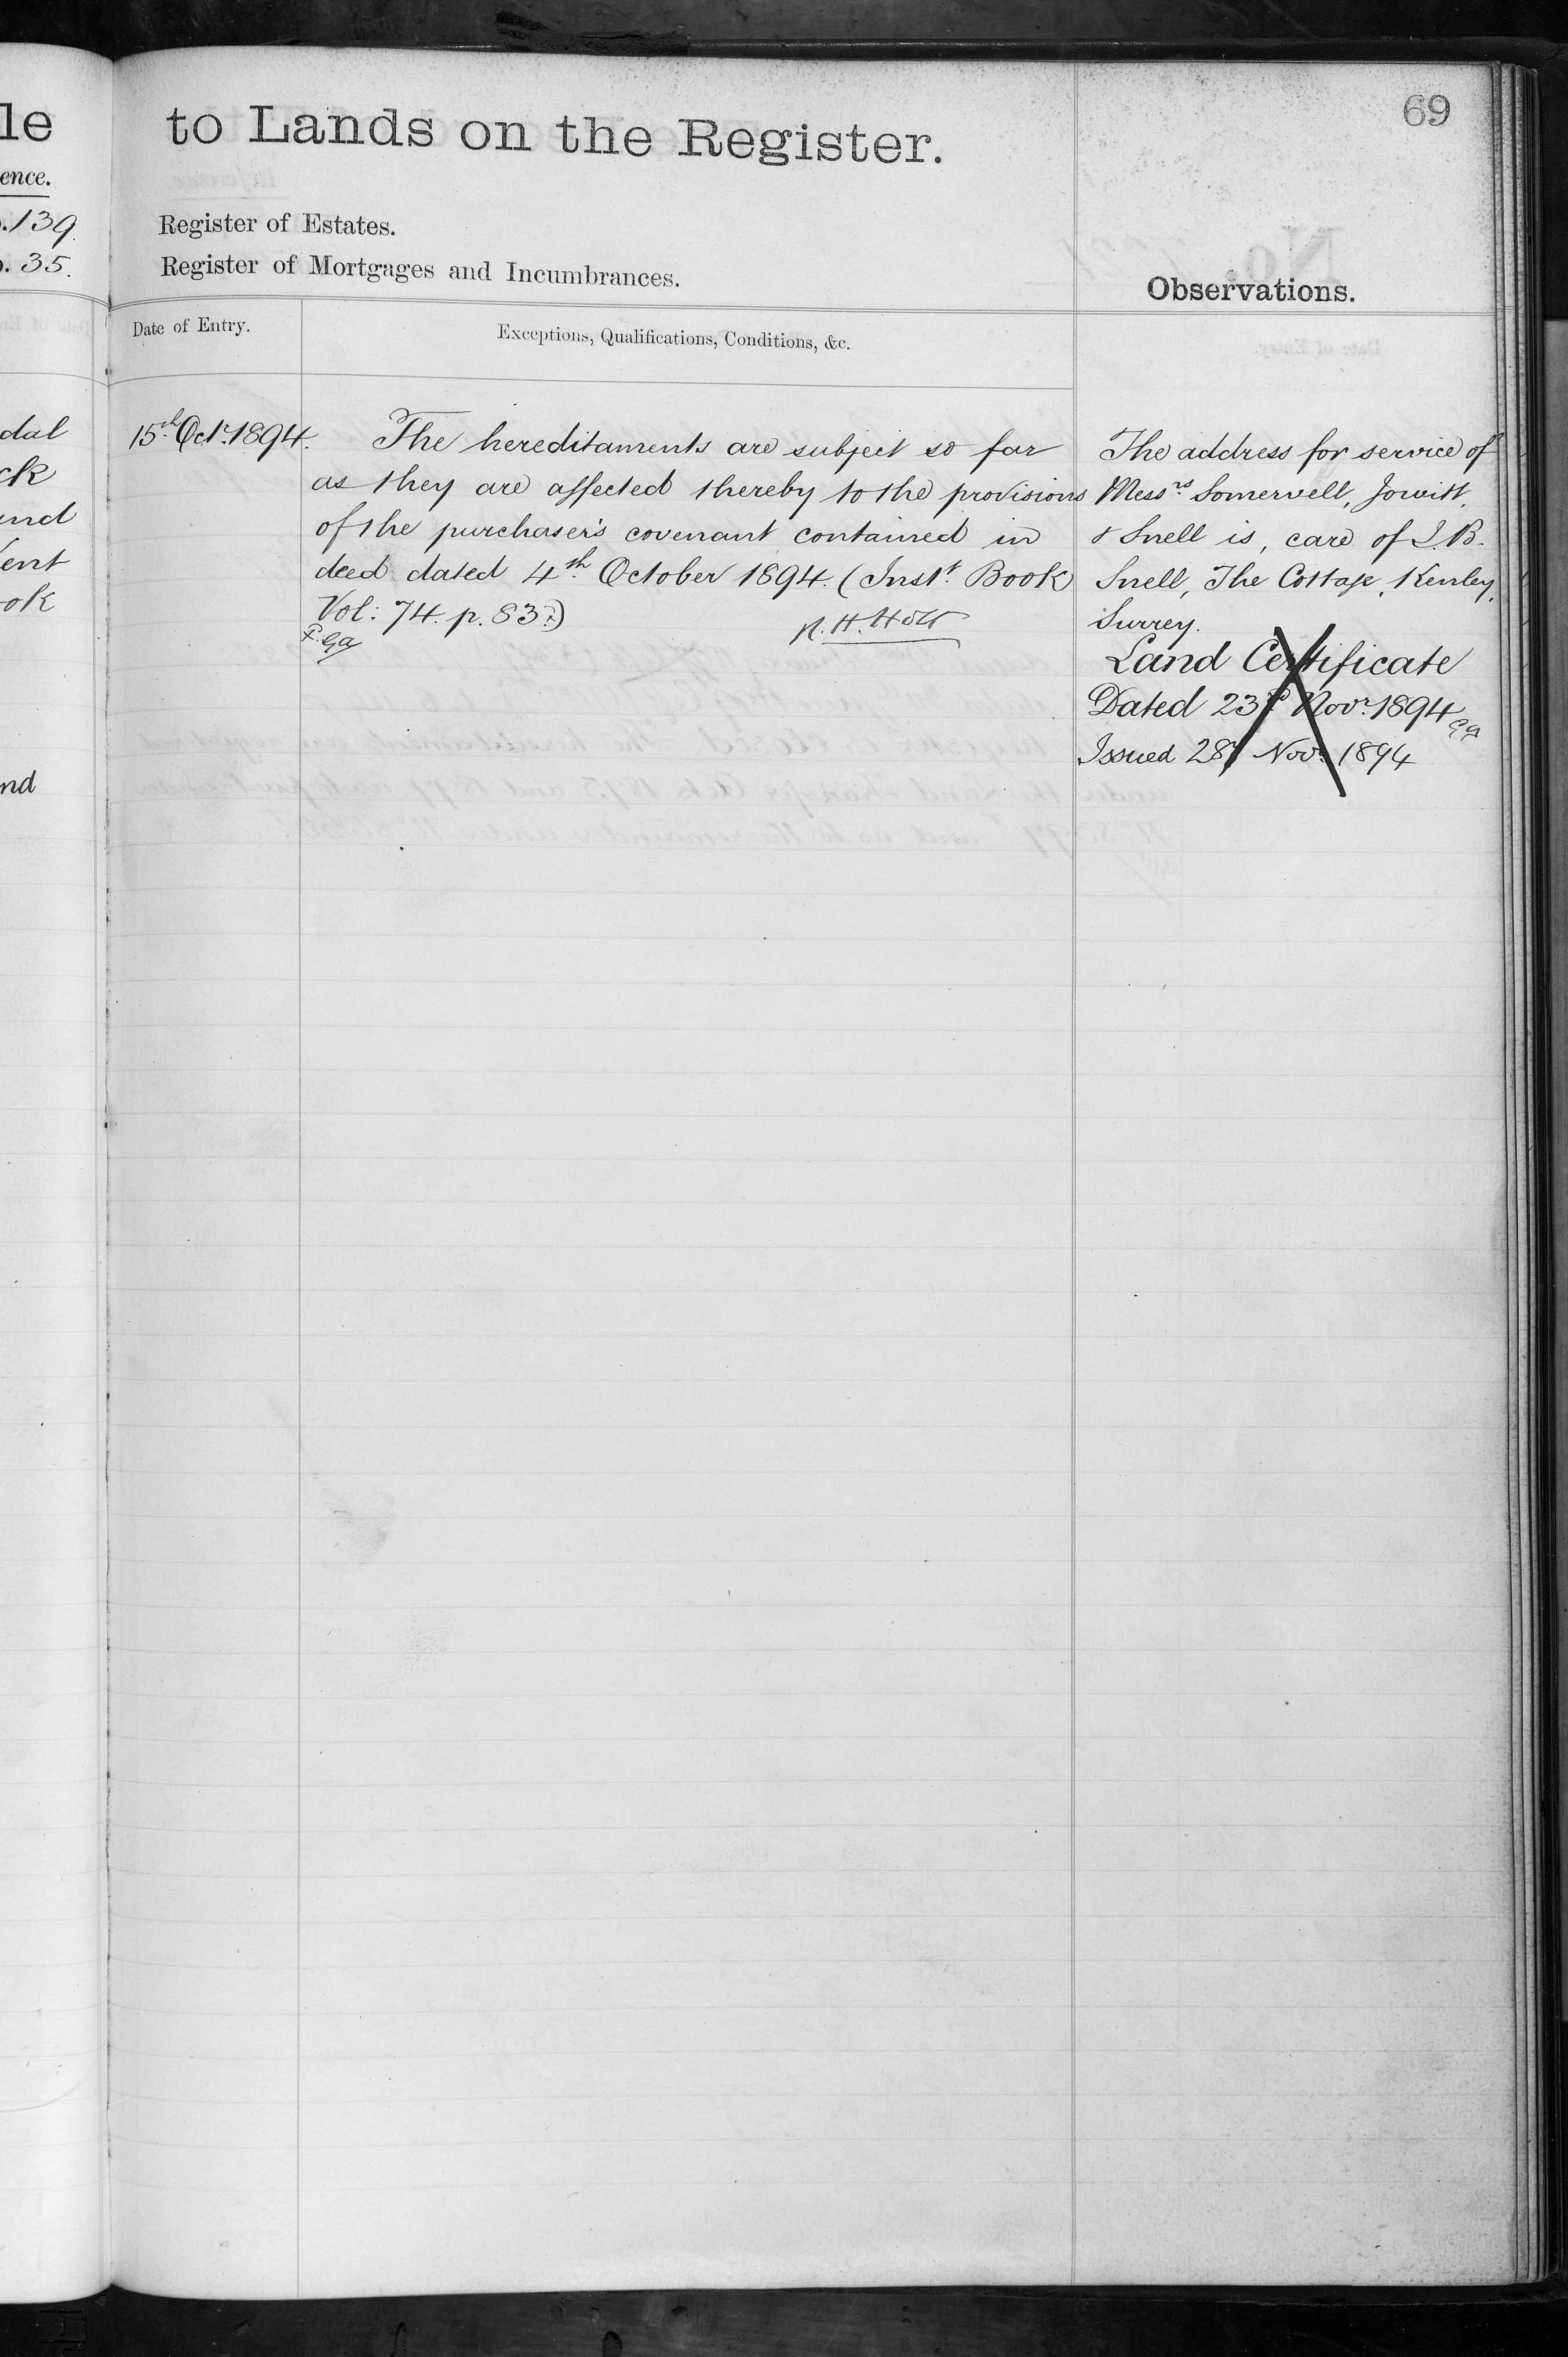 le
to Lands on the Register.
69
ence.
.139.
Register of Estates.
. 35.
Register of Mortgages and Incumbrances.
Observations.
Date of Entry.
Exceptions, Qualifications, Conditions, &c.
dal
ck
und
ent
ok
nd
15th Octr. 1894.
The hereditaments are subject so far
as they are affected thereby to the provisions
of the purchaser's covenant contained in
deed dated 4th October 1894. (Inst. Book
Vol: 74. p. 83.)
The address for service of
Messrs Somervell, Jowitt,
& Snell is, care of I. B.
Snell, The Cottage, Kenley,
Surrey.
Land Certificate
Dated 23rd Novr. 1894
Issued 28th Novr. 1894